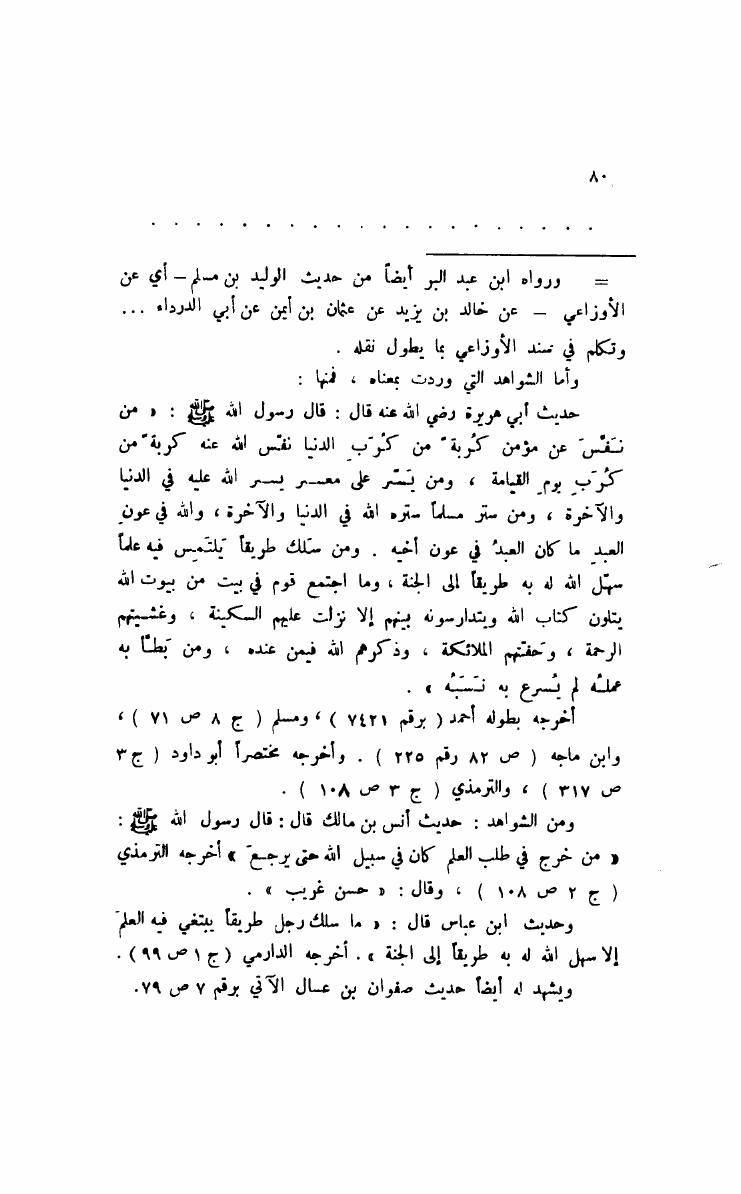 ٨٠
. . . . . . . . . . . . . . . . . . . .
= ورواه ابن عبد البر أيضاً من حديث الوليد بن مسلم – أي عن
الأوزاعي – عن خالد بن يزيد عن عثمان بن أيمن عن أبي الدرداء ...
وتكلم في سند الأوزاعي بما يطول نقله .
وأما الشواهد التي وردت بمعناه ، فمنها :
حديث أبي هريرة رضي الله عنه قال : قال رسول الله ﷺ : « من
نَفَّسَ عن مؤمن كُربةً من كُرَبِ الدنيا نفّس الله عنه كربةً من
كُرَبِ يومِ القيامة ، ومن يَسَّر على معسر يسر الله عليه في الدنيا
والآخرة ، ومن ستر مسلماً ستره الله في الدنيا والآخرة ، والله في عونِ
العبدِ ما كان العبدُ في عون أخيه . ومن سَلك طريقاً يَلتَمِس فيه علماً
سهّل الله له به طريقاً الى الجنة ، وما اجتمع قوم في بيت من بيوت الله
يتلون كتاب الله ويتدارسونه بينهم إلا نزلت عليهم السكينة ، وغشيتهم
الرحمة ، وَحفتهم الملائكة ، وذكرهم الله فيمن عنده ، ومن بَطَّأ به
عملُه لم يُسرع به نَسَبُه » .
أخرجه بطوله أحمد ( برقم ٧٤٢١ ) ، ومسلم ( ج ٨ ص ٧١ ) ،
وابن ماجه ( ص ٨٢ رقم ٢٢٥ ) . وأخرجه مختصراً أبو داود ( ج ٣
ص ٣١٧ ) ، والترمذي ( ج ٣ ص ١٠٨ ) .
ومن الشواهد : حديث أنس بن مالك قال : قال رسول الله ﷺ :
« من خرج في طلب العلم كان في سبيل الله حتى يرجعَ » أخرجه الترمذي
( ج ٢ ص ١٠٨ ) ، وقال : « حسن غريب » .
وحديث ابن عباس قال : « ما سلك رجل طريقاً يبتغي فيه العلمَ
إلا سهل الله له به طريقاً إلى الجنة » . أخرجه الدارمي ( ج ١ ص ٩٩ ) .
ويشهد له أيضاً حديث صفوان بن عسال الآتي برقم ٧ ص ٧٩ .